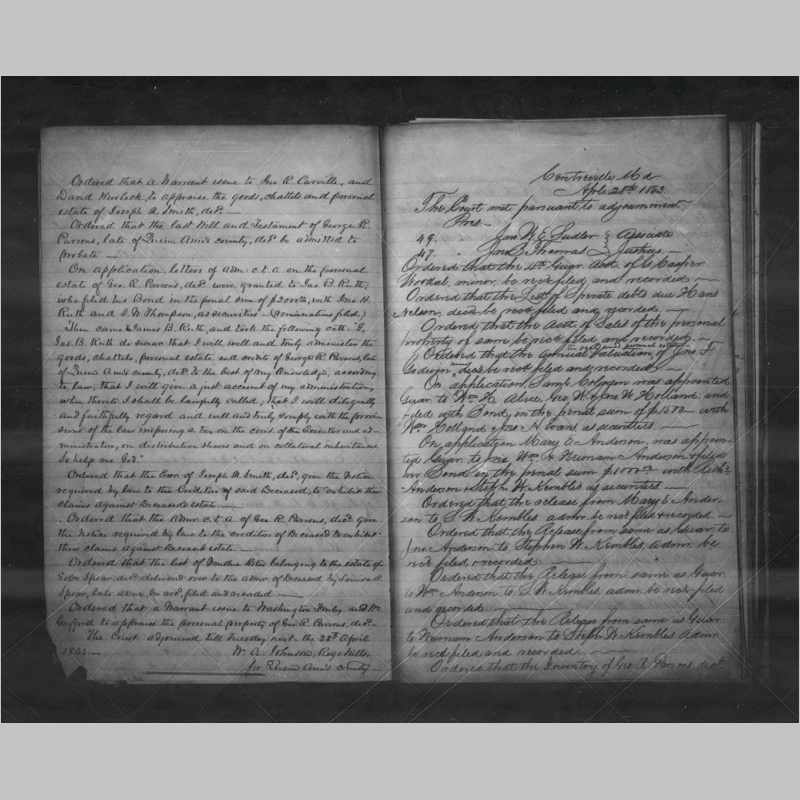 Ordered that a Warrant issue to Geo R. Carville, and
David to appraise the goods, chattels and personal
estate of Joseph A. Smith, decd. —
Ordered that the last Will and Testament of George R.
Parsons, late of Queen Ann's county, decd. be admitted to
probate —
On application, letters of adm. c.t.a on the personal
estate of Geo. R. Parsons, decd. were granted to Jas. B. Ruth,
who filed his Bond in the penal sum of with Geo. H.
Ruth and S. W. Thompson, as securities — (nominations filed.)
Then came James B. Ruth, and took the following oath: "I,
Jas. B. Ruth do swear that I will well and truly administer the
goods, chattels, personal estate and credits of George R. Parsons, late
of Queen Ann's county, decd. to the best of my knowledge, according
to law; that I will give a just account of my administration,
when thereto I shall be lawfully called; that I will diligently
and faithfully regard and well and truly comply with the provis-
ions of the law imposing a tax on the com. of the Executor and ad-
ministrator, on distributive shares and on collateral inheritance
So help me God."
Ordered that the Exor. of Joseph A. Smith, decd. give the Notice
required by law to the Creditors of said Deceased, to exhibit their
claims against Deceased's estate —
Ordered that the Admr. c.t.a of Geo R. Parsons, decd. give
the Notice required by law to the creditors of Deceased to exhibit
their claims against Deceased estate. —
Ordered that the list of belonging to the estate of
Spear, decd. delivered over to the admr. of Deceased by
Spear, late be recd. filed and recorded —
Ordered that a Warrant issue to Washington Finley and Wm
to appraise the personal property of Geo. R. Parsons, decd. —
The Court adjourned till Tuesday next the 28th April
1863. —
W. A. Johnson, Reg. Wills
for Queen Ann's County —
Centreville Md
Aple 28th 1863
The Court met pursuant to adjournment
Pres —
49. Jas W E Sudler } Associate
47. " Thomas } Justices —
Ordered that the 4th Guar. Acct. of Casper
Woodal, minor be recd. filed and recorded —
Ordered that the List of Sperate debts due Hans
Nelson, decd. be recd. filed and recorded. —
Ordered that the Acct. of Sales of the personal
property of same be recd. filed and recorded. —
Ordered that the Annual Valuation of Jno. F
decd. be not filed and recorded —
On application, Saml. was appointed
Guar. to Wm. H. Alice, Geo. W. & Jno. W. Holland and
filed with Bond, in the penal sum of with
Wm. Holland & Jas N. as securities —
On application Mary E Anderson, was appoin-
ted Guar. to Jno. Wm & Newman Anderson & filed
her Bond in the penal sum $1000.00 with
Anderson & Steph. W. Kembles as securities —
Ordered that the release from Mary E Ander-
son to S. W. Kembles admr. be recd. filed & recorded —
Ordered that the Release from same as Guar. to
Jno Anderson to Stephen W. Kembles admr. be
recd. filed & recorded —
Ordered that the Release from same as Guar.
to Wm. Anderson to S. W. Kembles admr. be recd. filed
and recorded —
Ordered that the Release from same as Guar.
to Newman Anderson to Steph W. Kembles Admr.
be recd. filed and recorded. —
Ordered that the Inventory of Geo. R. Parsons, decd.